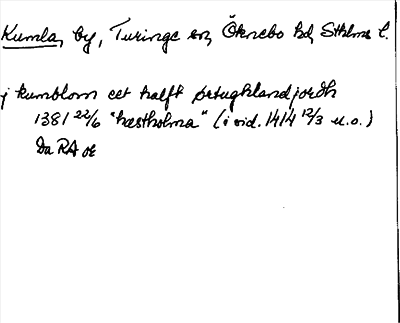 Kumla, by, Turinge sn, Öknebo hd, Sthlms l.
j kumblom eet halfft ørtughland jordh
1381 22/6 "hæstholma" (i vid. 1414 12/3 u.o.)
Da RA or